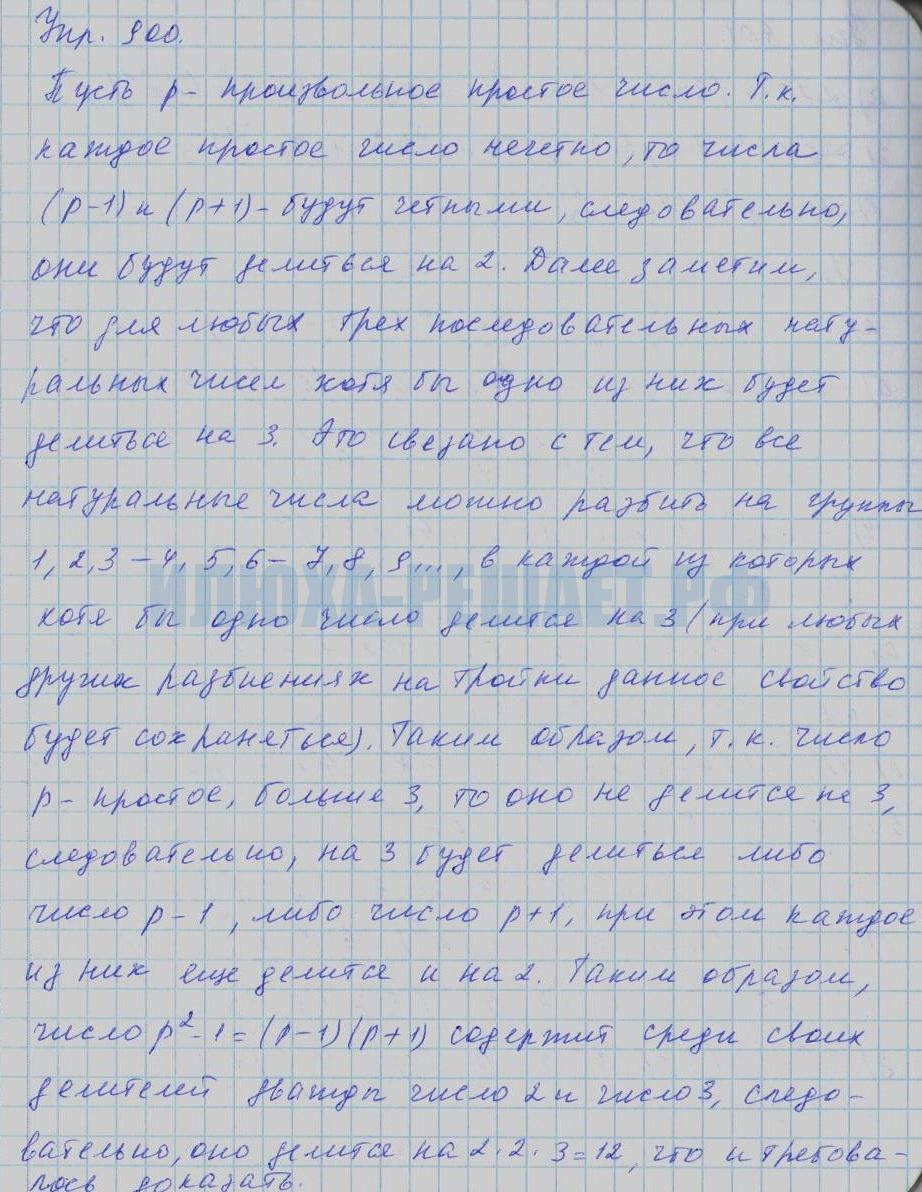 Упр. 900.
Пусть p - произвольное простое число. Т.к.
каждое простое число нечетно, то числа
(p-1) и (p+1) - будут четными, следовательно,
они будут делиться на 2. Далее заметим,
что для любых трех последовательных нату-
ральных чисел хотя бы одно из них будет
делиться на 3. Это связано с тем, что все
натуральные числа можно разбить на группы
1, 2, 3 - 4, 5, 6 - 7, 8, 9..., в каждой из которых
ИЛЮХА-РЕШАЕТ.РФ
хотя бы одно число делится на 3 (при любых
других разбиениях на тройки данное свойство
будет сохраняться). Таким образом, т.к. число
p - простое, больше 3, то оно не делится на 3,
следовательно, на 3 будет делиться либо
число p-1, либо число p+1, при этом каждое
из них еще делится и на 2. Таким образом,
число p²-1=(p-1)(p+1) содержит среди своих
делителей дважды число 2 и число 3, следо-
вательно, оно делится на 2·2·3=12, что и требова-
лось доказать.